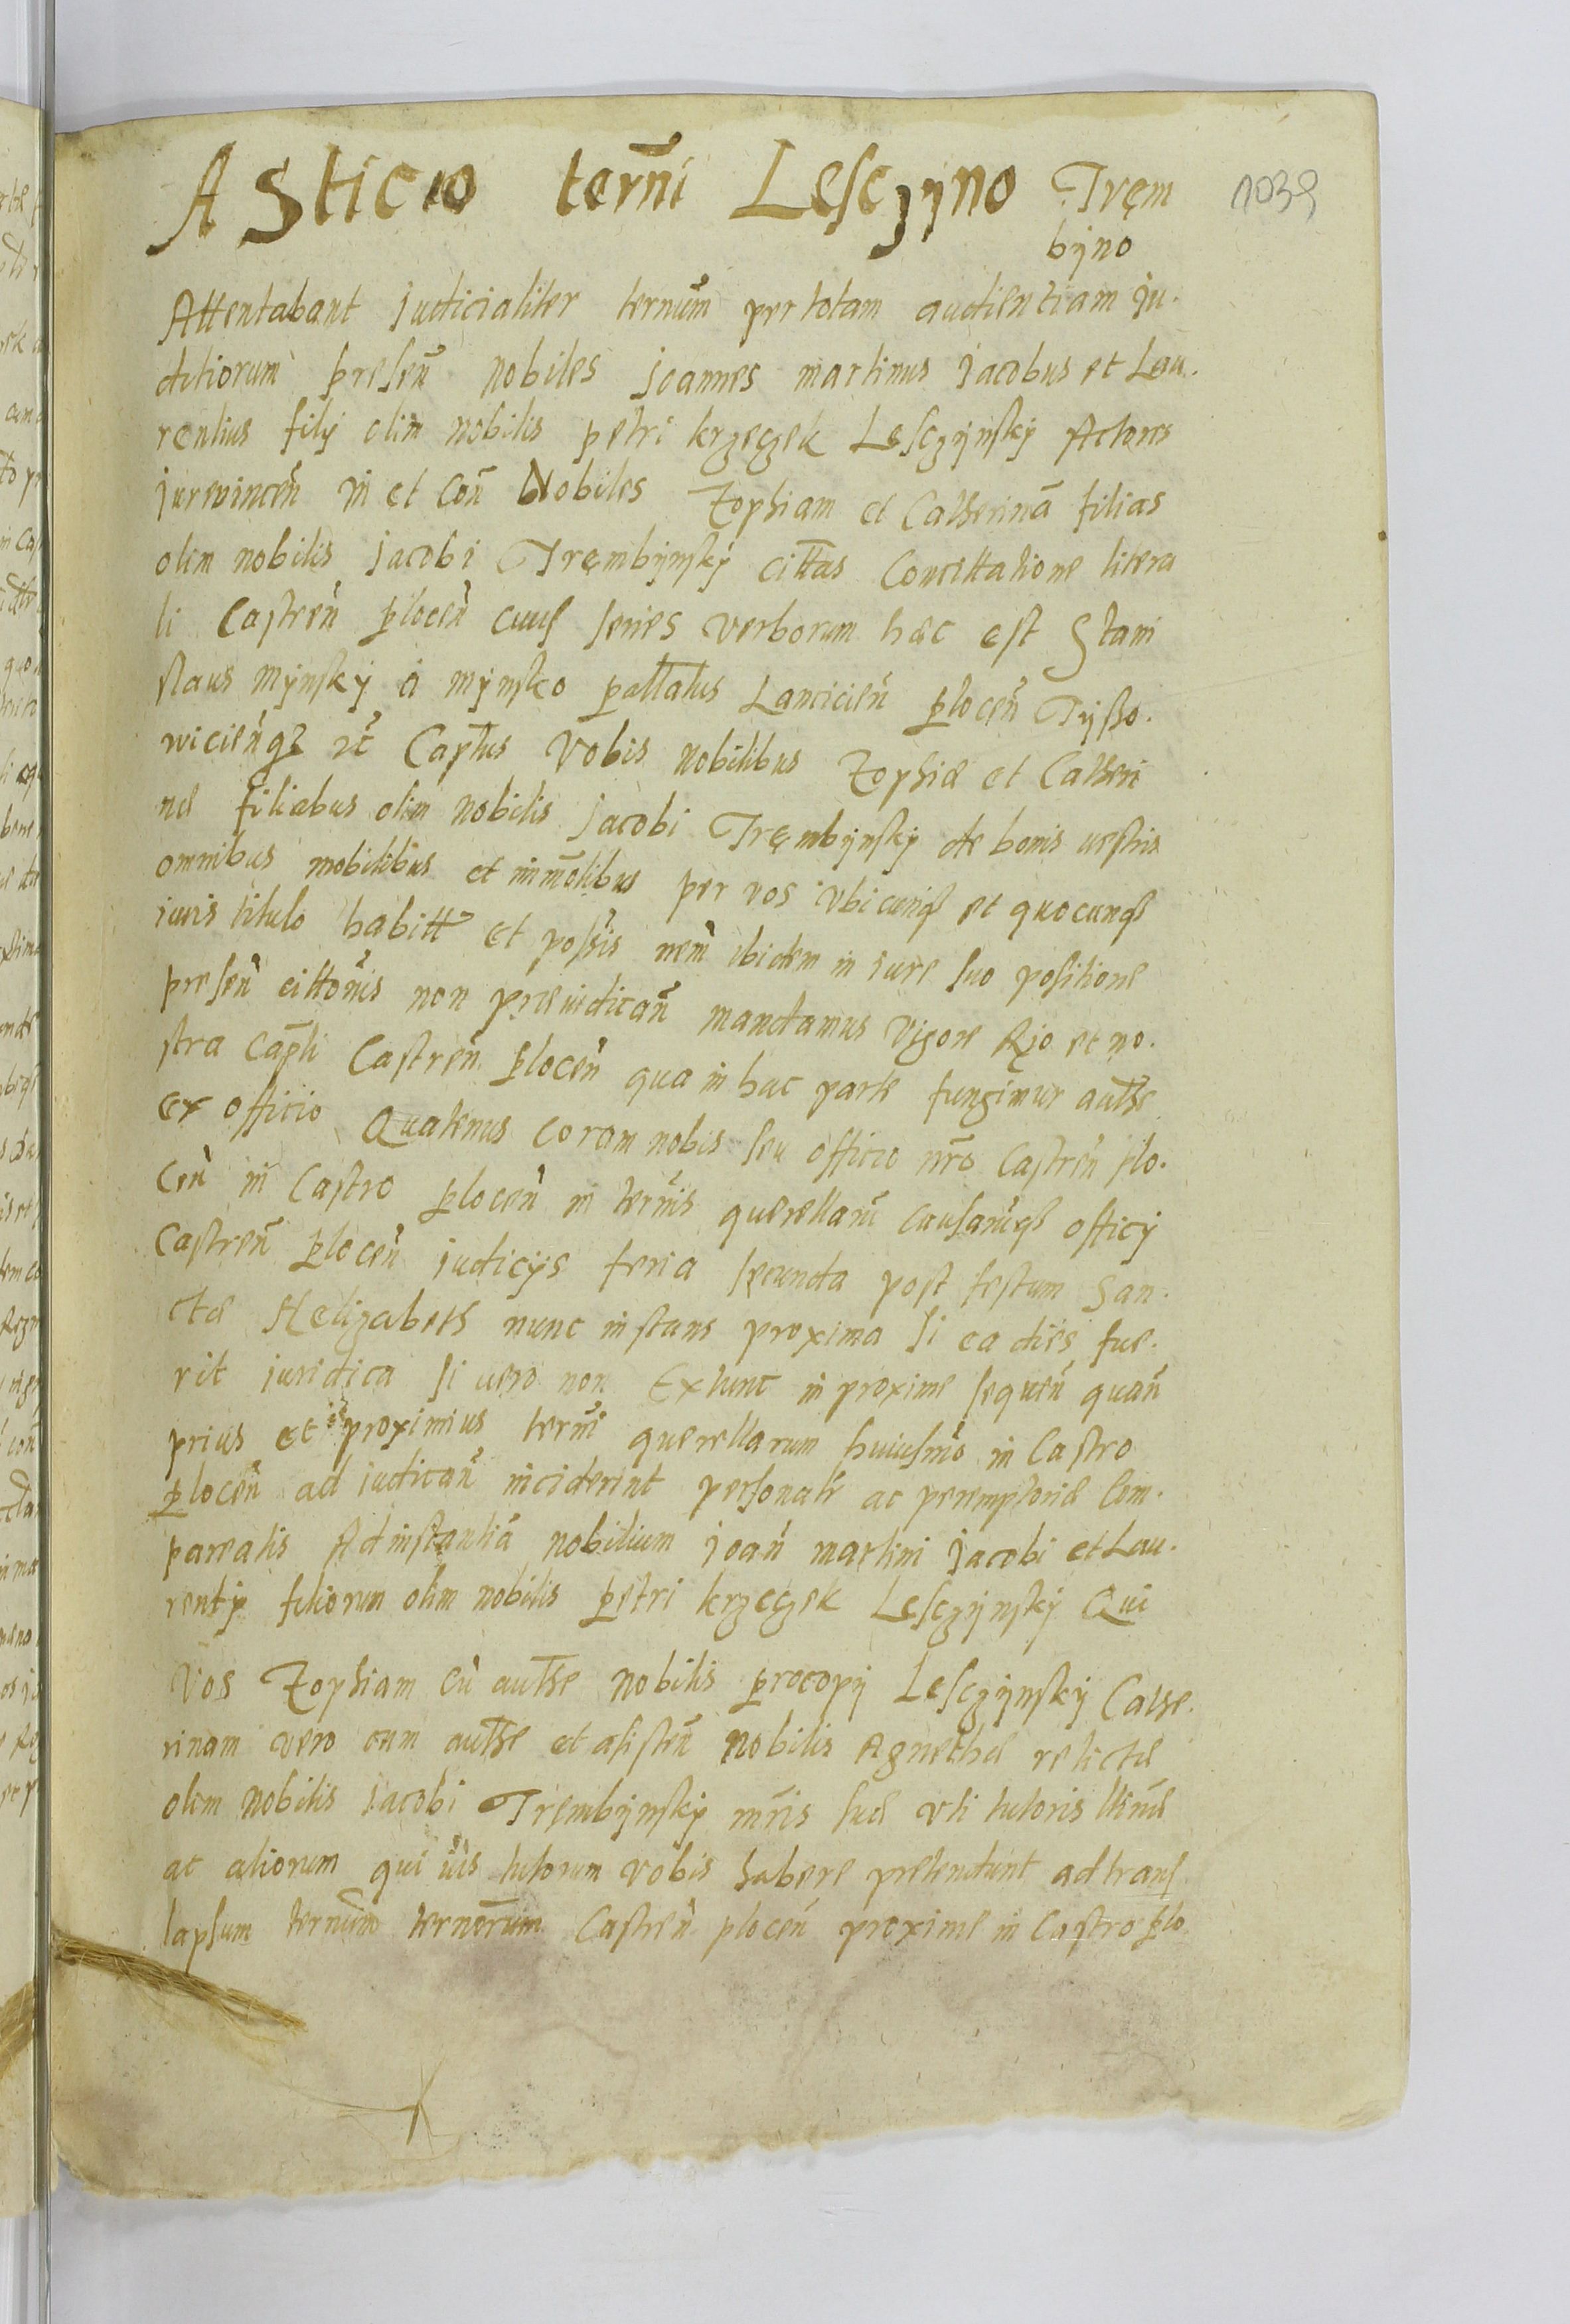 Asticio terñi Lesczyno Tręm
byno
1039
Attentabant judicialiter ternum̃ per totam audientiam ju-
ditiorum presen̄ nobiles joannes martinus jacobus et Lau-
rentius filij olim nobilis petri krzeczek Lesczynsky Actores
jurevincen̄ in et con̄ Nobiles Zophiam et Catherinā filias
olim nobilis jacobi Trembynsky citt̄as Concittatione litera
li Castren̄ plocen̄ cuius series verborum hæc est Stani
slaus Mynsky á mynsko pattatus Lancicien̄ plocen̄ Tysso-
wicien̄qz zc̄ Captūs Vobis nobilibus Zophiæ et Catheri
næ filiabus olim nobilis jacobi Trembynsky de bonis uestris
omnibus mobilibus et inmolibus per vos vbicunqz et quocunqz
iuris titulo habitt̄ et possis nem̄ ibidem in iure suo positione
presen̄ cittōnis non preiudican̄ mandamus Vigore Rjo et no-
stra Cap̄li Castren̄ plocen̄ qua in hac parte fungimur autħe
ex officio Quatenus coram nobis seu officio nr̄o Castren̄ plo-
cen̄ in Castro plocen̄ in term̄is querellarum̄ causarum̄qz officij
Castren̄ plocen̄ judicijs feria secunda post festum San-
ctæ Helizabeth nunc instans proxima si ea dies fue-
rit juridica si uero non Extunc in proxime sequen̄ quan̄
prius et proximius term̄i querellarum huiusmōi in Castro
plocen̄ ad judican̄ inciderint personalr̄ ac peremptoriæ Com-
pareatis Ad instantiā nobilium joan̄ martini jacobi et Lau-
rentij filiorum olim nobilis petri krzeczek Lesczynsky Qui
Vos Zophiam cū autħe nobilis procopij Lesczynsky Cathe-
rinam vero cum autħe et asisten̄ nobilis Agnethæ relictæ
olim nobilis jacobi Trembynsky mr̄is suæ vti tutoris
ac aliorum qui uis tutorum vobis habere pretendunt ad trans
lapsum ternum̄ ternorum̄ Castren̄ plocen̄ proxime in Castro plo